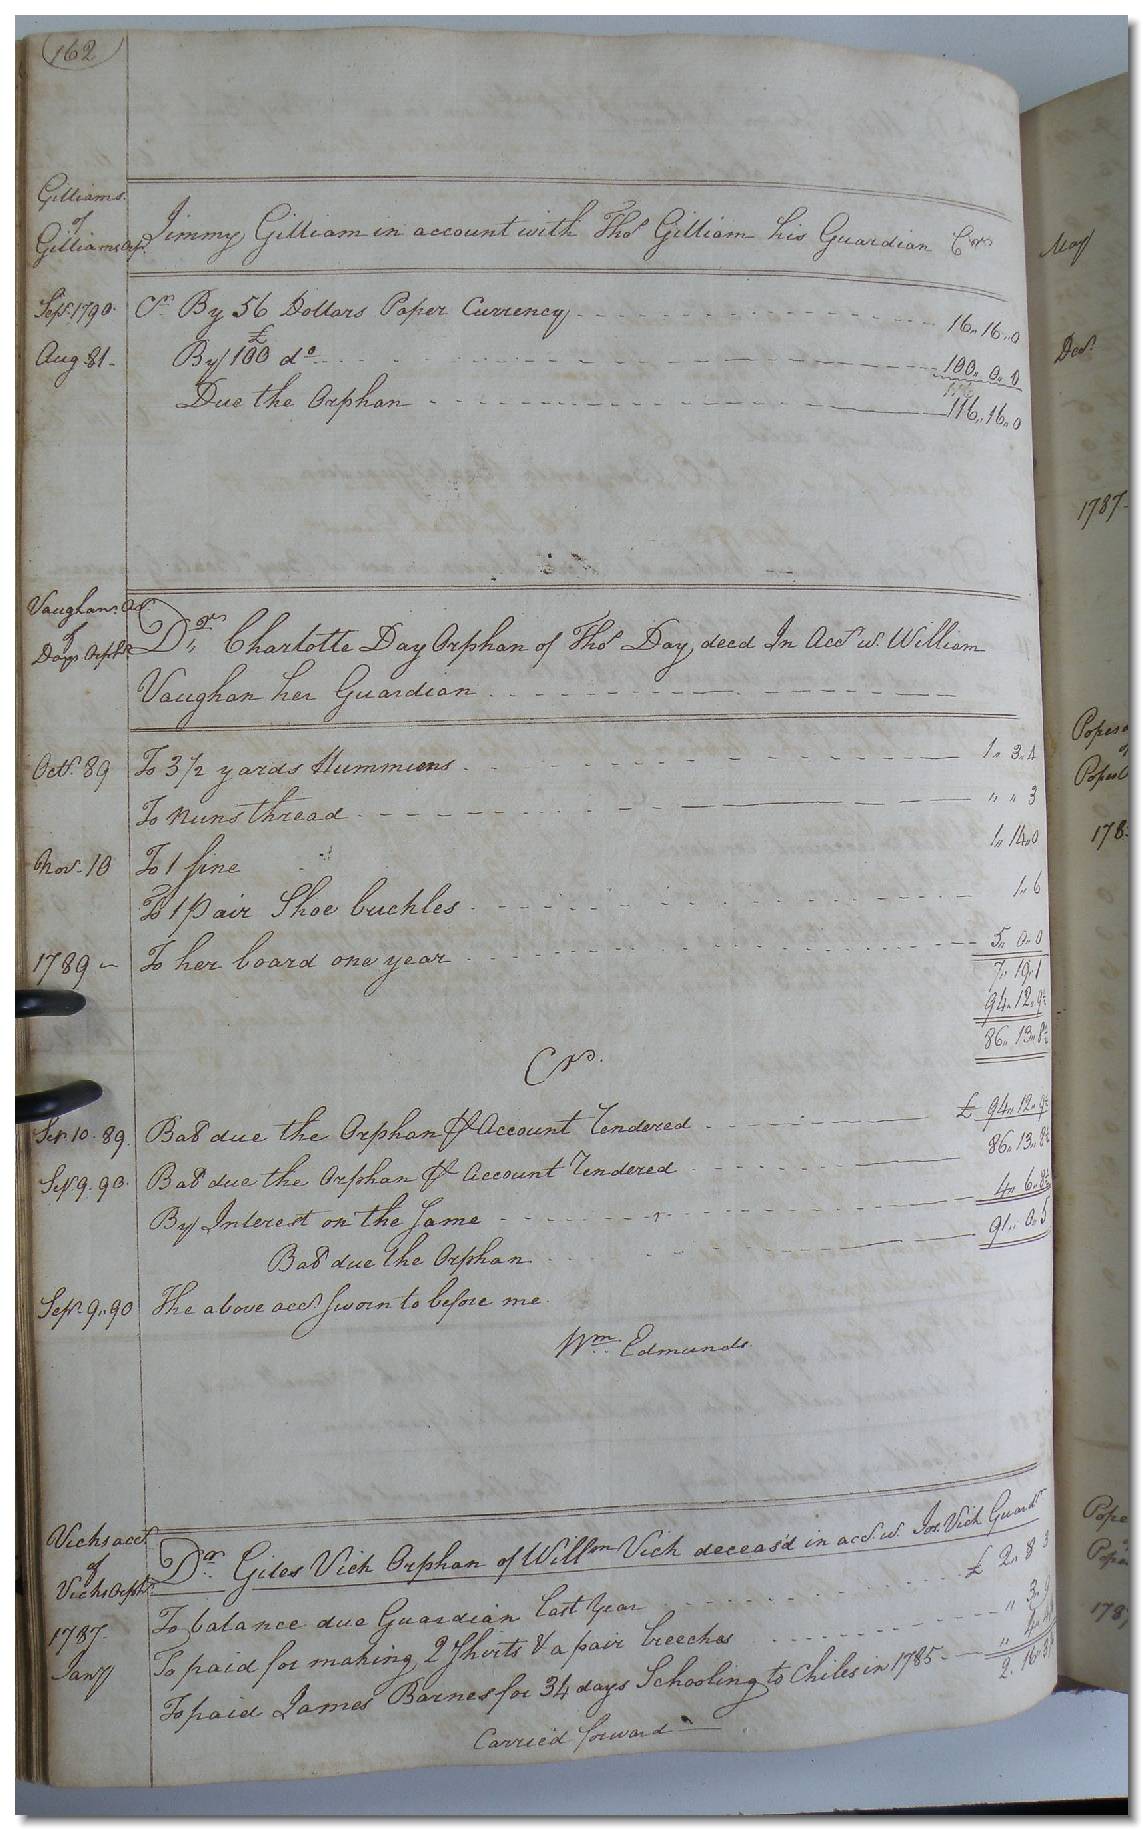 162
Gilliams
of
Gilliams orp.
Jimmy Gilliam in account with Thos Gilliam his Guardian Crs
Sepr. 1790. Cr. By 56 Dollars Paper Currency 16,, 16,, 0
Aug 81 - By £100 do 100,, 0,, 0
Due the Orphan 116,, 16,, 0
Vaughans acct
of
Days Orphn
Drs. Charlotte Day Orphan of Thos Day, deced In Acct w. William
Vaughan her Guardian
Octr. 89 To 3 1/2 yards Hummuns 1,, 3,, 4
To nuns thread ,, ,, 3
Nov. 10 To 1 fine 1,, 14,, 0
To 1 pair Shoe buckles 1,, 6
1789 - To her board one year 5,, 0,, 0
7,, 19,, 1
94,, 12,, 9½
86,, 13,, 8½
Crs.
Ser. 10. 89. Bal due the Orphan ⅌ Account Tendered £ 94,, 12,, 9½
Sepr 9. 90. Bal due the Orphan ⅌ Account Tendered 86,, 13,, 8½
By Interest on the Same 4,, 6,, 8½
Bal due the Orphan 91,, 0,, 5
Sepr. 9,, 90 The above acct Sworn to before me
Wm. Edmunds
Vicks acct.
of
Vicks Orphn
Dr. Giles Vick Orphan of Willm Vick deceas'd in acct w. Jos. Vick Guardn
1787. To balance due Guardian last Year £ 2,, 8 3
Jany To paid for making 2 Shirts & a pair breeches ,, 3,, 9
To paid James Barnes for 34 days Schooling to Chiles in 1785 -
2. 16,,
Carried forward
May
Decr.
1787
Popes
of
178
Pope
178